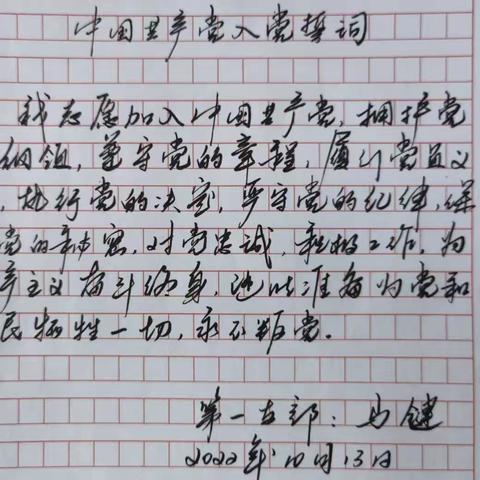 中国共产党入党誓词
我志愿加入中国共产党，拥护党
纲领，遵守党的章程，履行党员义
，执行党的决定，严守党的纪律，保
党的秘密，对党忠诚，积极工作，为
产主义奋斗终身，随时准备为党和
民牺牲一切，永不叛党。
第一支部：马健
2022年10月13日